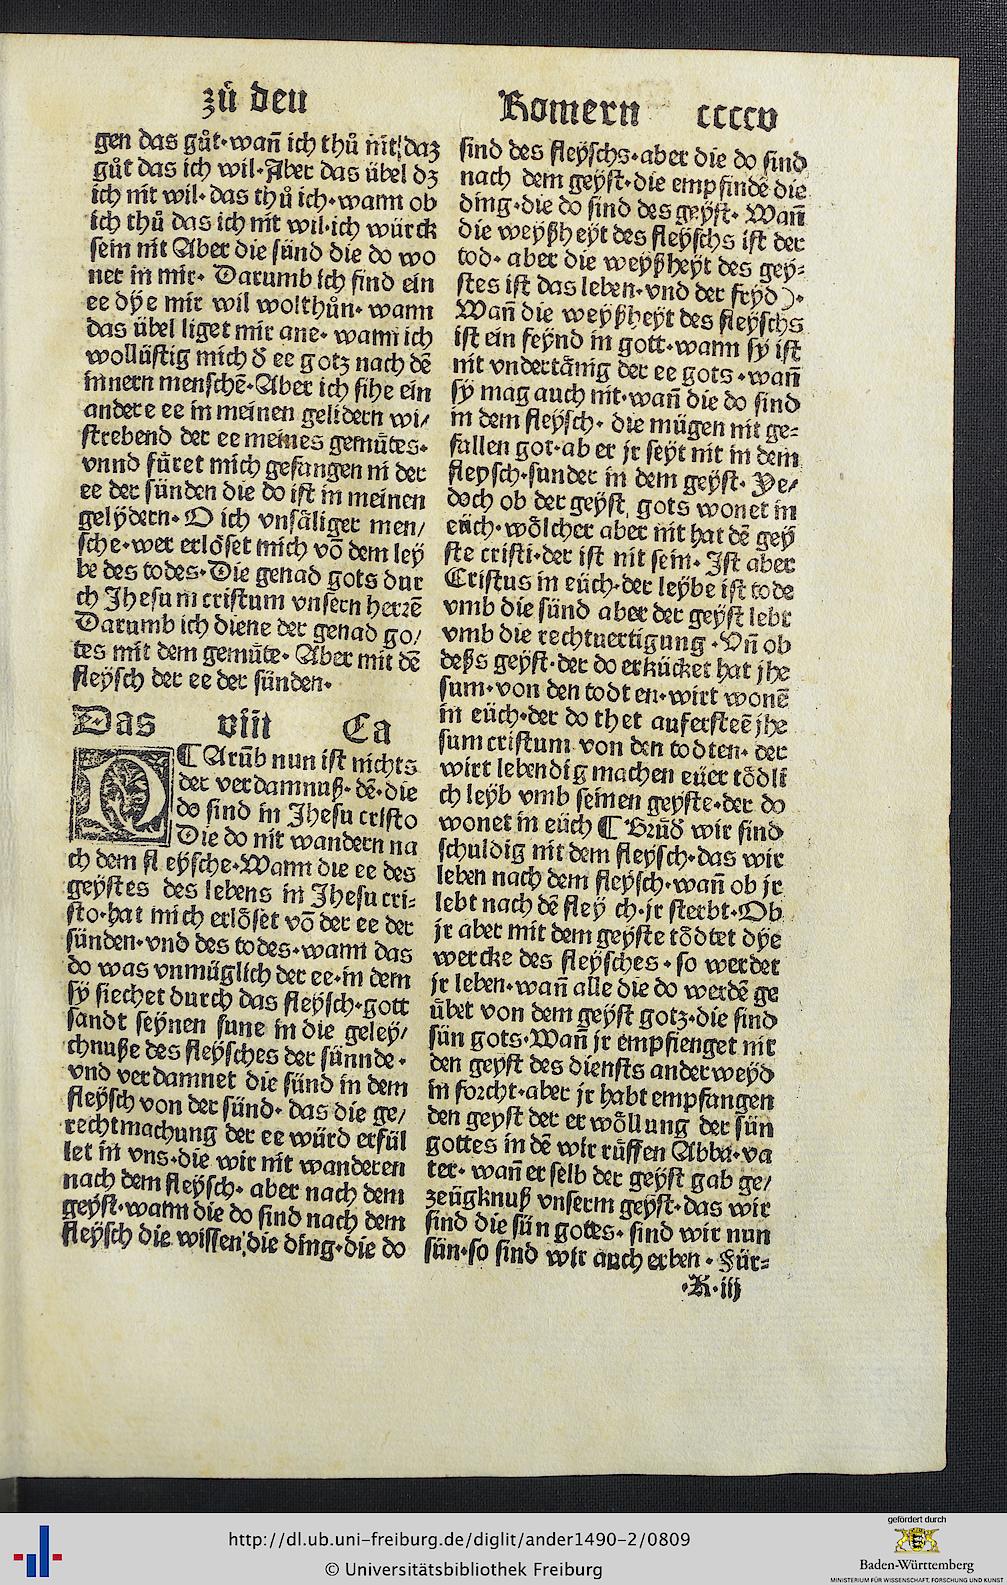 zů den
Romern ccccv
gen das gůt·wañ ich thů nit daz
gůt das ich wil·Aber das übel dz
ich nit wil·das thů ich·wann ob
ich thů das ich nit wil·ich würck
sein nit Aber die sünd die do wo
net in mir· Darumb ich find ein
ee dÿe mir wil wolthůn·wann
das übel liget mir ane·wann ich
wollüstig mich ð ee gotz nach dē
innern menschē·Aber ich sihe ein
andere ee in meinen gelidern wi/
strebend der ee meines gemütes·
vnnd füret mich gefangen in der
ee der sünden die do ist in meinen
gelÿdern·O ich vnsäliger men/
sche·wer erlöset mich vō dem leÿ
be des todes·Die genad gots dur
ch Jhesum cristum vnsern herrē
Darumb ich diene der genad go/
tes mit dem gemüte· Aber mit dē
fleÿsch der ee der sünden·
Das viii Ca
D ¶ Arūb nun ist nichts
der verdamnuß·dē·die
do sind in Jhesu cristo
Die do nit wandern na
ch dem fleÿsche·Wann die ee des
geÿstes des lebens in Jhesu cri=
sto·hat mich erlöset vō der ee der
sünden·vnd des todes·wann das
do was vnmüglich der ee·in dem
sÿ siechet durch das fleÿsch·gott
sandt seÿnen sune in die geleÿ/
chnuße des fleÿsches der sünnde·
vnd verdamnet die sünd in dem
fleÿsch von der sünd· das die ge/
rechtmachung der ee würd erfül
let in vns·die wir nit wanderen
nach dem fleÿsch· aber nach dem
geÿst·wann die do sind nach dem
fleÿsch die wissen die ding·die do
sind des fleÿschs·aber die do sind
nach dem geÿst·die empfindē die
ding·die do sind des geÿst· Wañ
die weÿßheÿt des fleÿschs ist der
tod· aber die weÿßheÿt des geÿ=
stes ist das leben·vnd der frÿd)·
Wañ die weÿßheÿt des fleÿschs
ist ein feÿnd in gott·wann sÿ ist
nit vndertänig der ee gots·wañ
sÿ mag auch nit·wañ die do sind
in dem fleÿsch· die mügen nit ge=
fallen got·aber jr seÿt nit in dem
fleysch·sunder in dem geÿst· Ye/
doch ob der geÿst gots wonet in
eüch·wölcher aber nit hat dē geÿ
ste cristi·der ist nit sein· Ist aber
Cristus in eüch·der leÿbe ist tode
vmb die sünd aber der geÿst lebt
vmb die rechtuertigung·Vñ ob
deßs geÿst·der do erkücket hat jhe
sum·von den todten·wirt wonē
in eüch·der do thet aufersteē jhe
sum cristum von den todten· der
wirt lebendig machen eüer tödli
ch leÿb vmb seinen geyste·der do
wonet in eüch ¶ Brůð wir sind
schuldig nit dem fleÿsch·das wir
leben nach dem fleÿsch·wañ ob jr
lebt nach dē fleÿ ch·jr sterbt·Ob
jr aber mit dem geÿste tödtet dÿe
wercke des fleÿsches·so werdet
jr leben·wañ alle die do werdē ge
übet von dem geÿst gotz·die sind
sün gots·Wañ jr empfienget nit
den geÿst des diensts anderweÿd
in forcht·aber jr habt empfangen
den geyst der erwöllung der sün
gottes in dē wir rüffen Abba·va
ter· wañ er selb der geÿst gab ge/
zeügknuß vnserm geÿst·das wir
sind die sün gottes· sind wir nun
sün·so sind wir auch erben·Für=
·R·iij
http://dl.ub.uni-freiburg.de/diglit/ander1490-2/0809
© Universitätsbibliothek Freiburg
gefördert durch
Baden-Württemberg
MINISTERIUM FÜR WISSENSCHAFT, FORSCHUNG UND KUNST